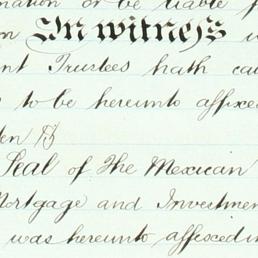 nation or be liable f
In witness
nt Trustees hath cau
to be hereunto affixe
Seal of The Mexican
Mortgage and Investmen
was hereunto affixed in